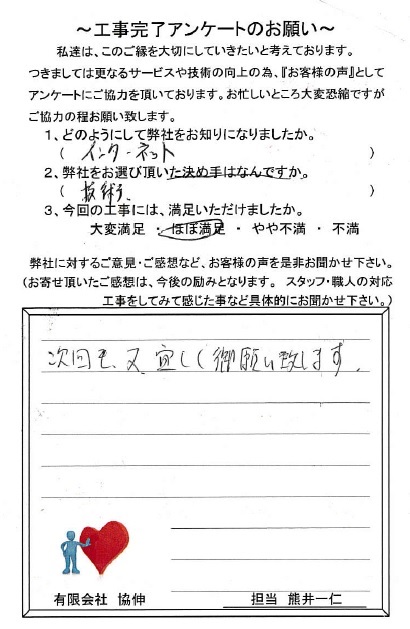 ～工事完了アンケートのお願い～
私達は、このご縁を大切にしていきたいと考えております。
つきましては更なるサービスや技術の向上の為、『お客様の声』として
アンケートにご協力を頂いております。お忙しいところ大変恐縮ですが
ご協力の程お願い致します。
1、どのようにして弊社をお知りになりましたか。
( インターネット )
2、弊社をお選び頂いた決め手はなんですか。
( 技術 )
3、今回の工事には、満足いただけましたか。
大変満足 ・ ほぼ満足 ・ やや不満 ・ 不満
弊社に対するご意見・ご感想など、お客様の声を是非お聞かせ下さい。
(お寄せ頂いたご感想は、今後の励みとなります。 スタッフ・職人の対応
工事をしてみて感じた事など具体的にお聞かせ下さい。)
次回も、又、宜しく御願い致します。
有限会社 協伸
担当 熊井一仁